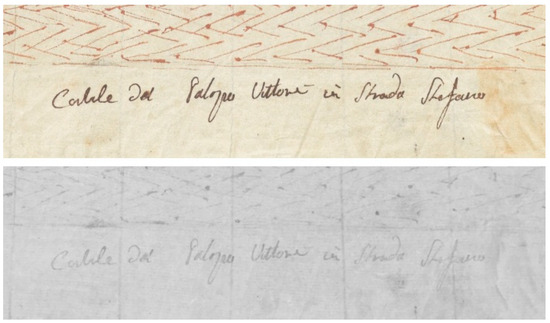 Cortile del Palazzo Vittone in Strada Stefano
Cortile del Palazzo Vittone in Strada Stefano